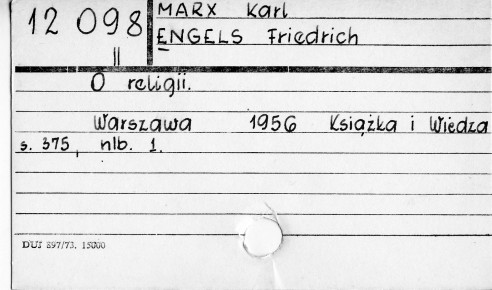 12 098
II
MARX Karl
ENGELS Friedrich
O religii.
Warszawa 1956 Książka i Wiedza
s. 375, nlb. 1.
DUJ 897/73. 15000